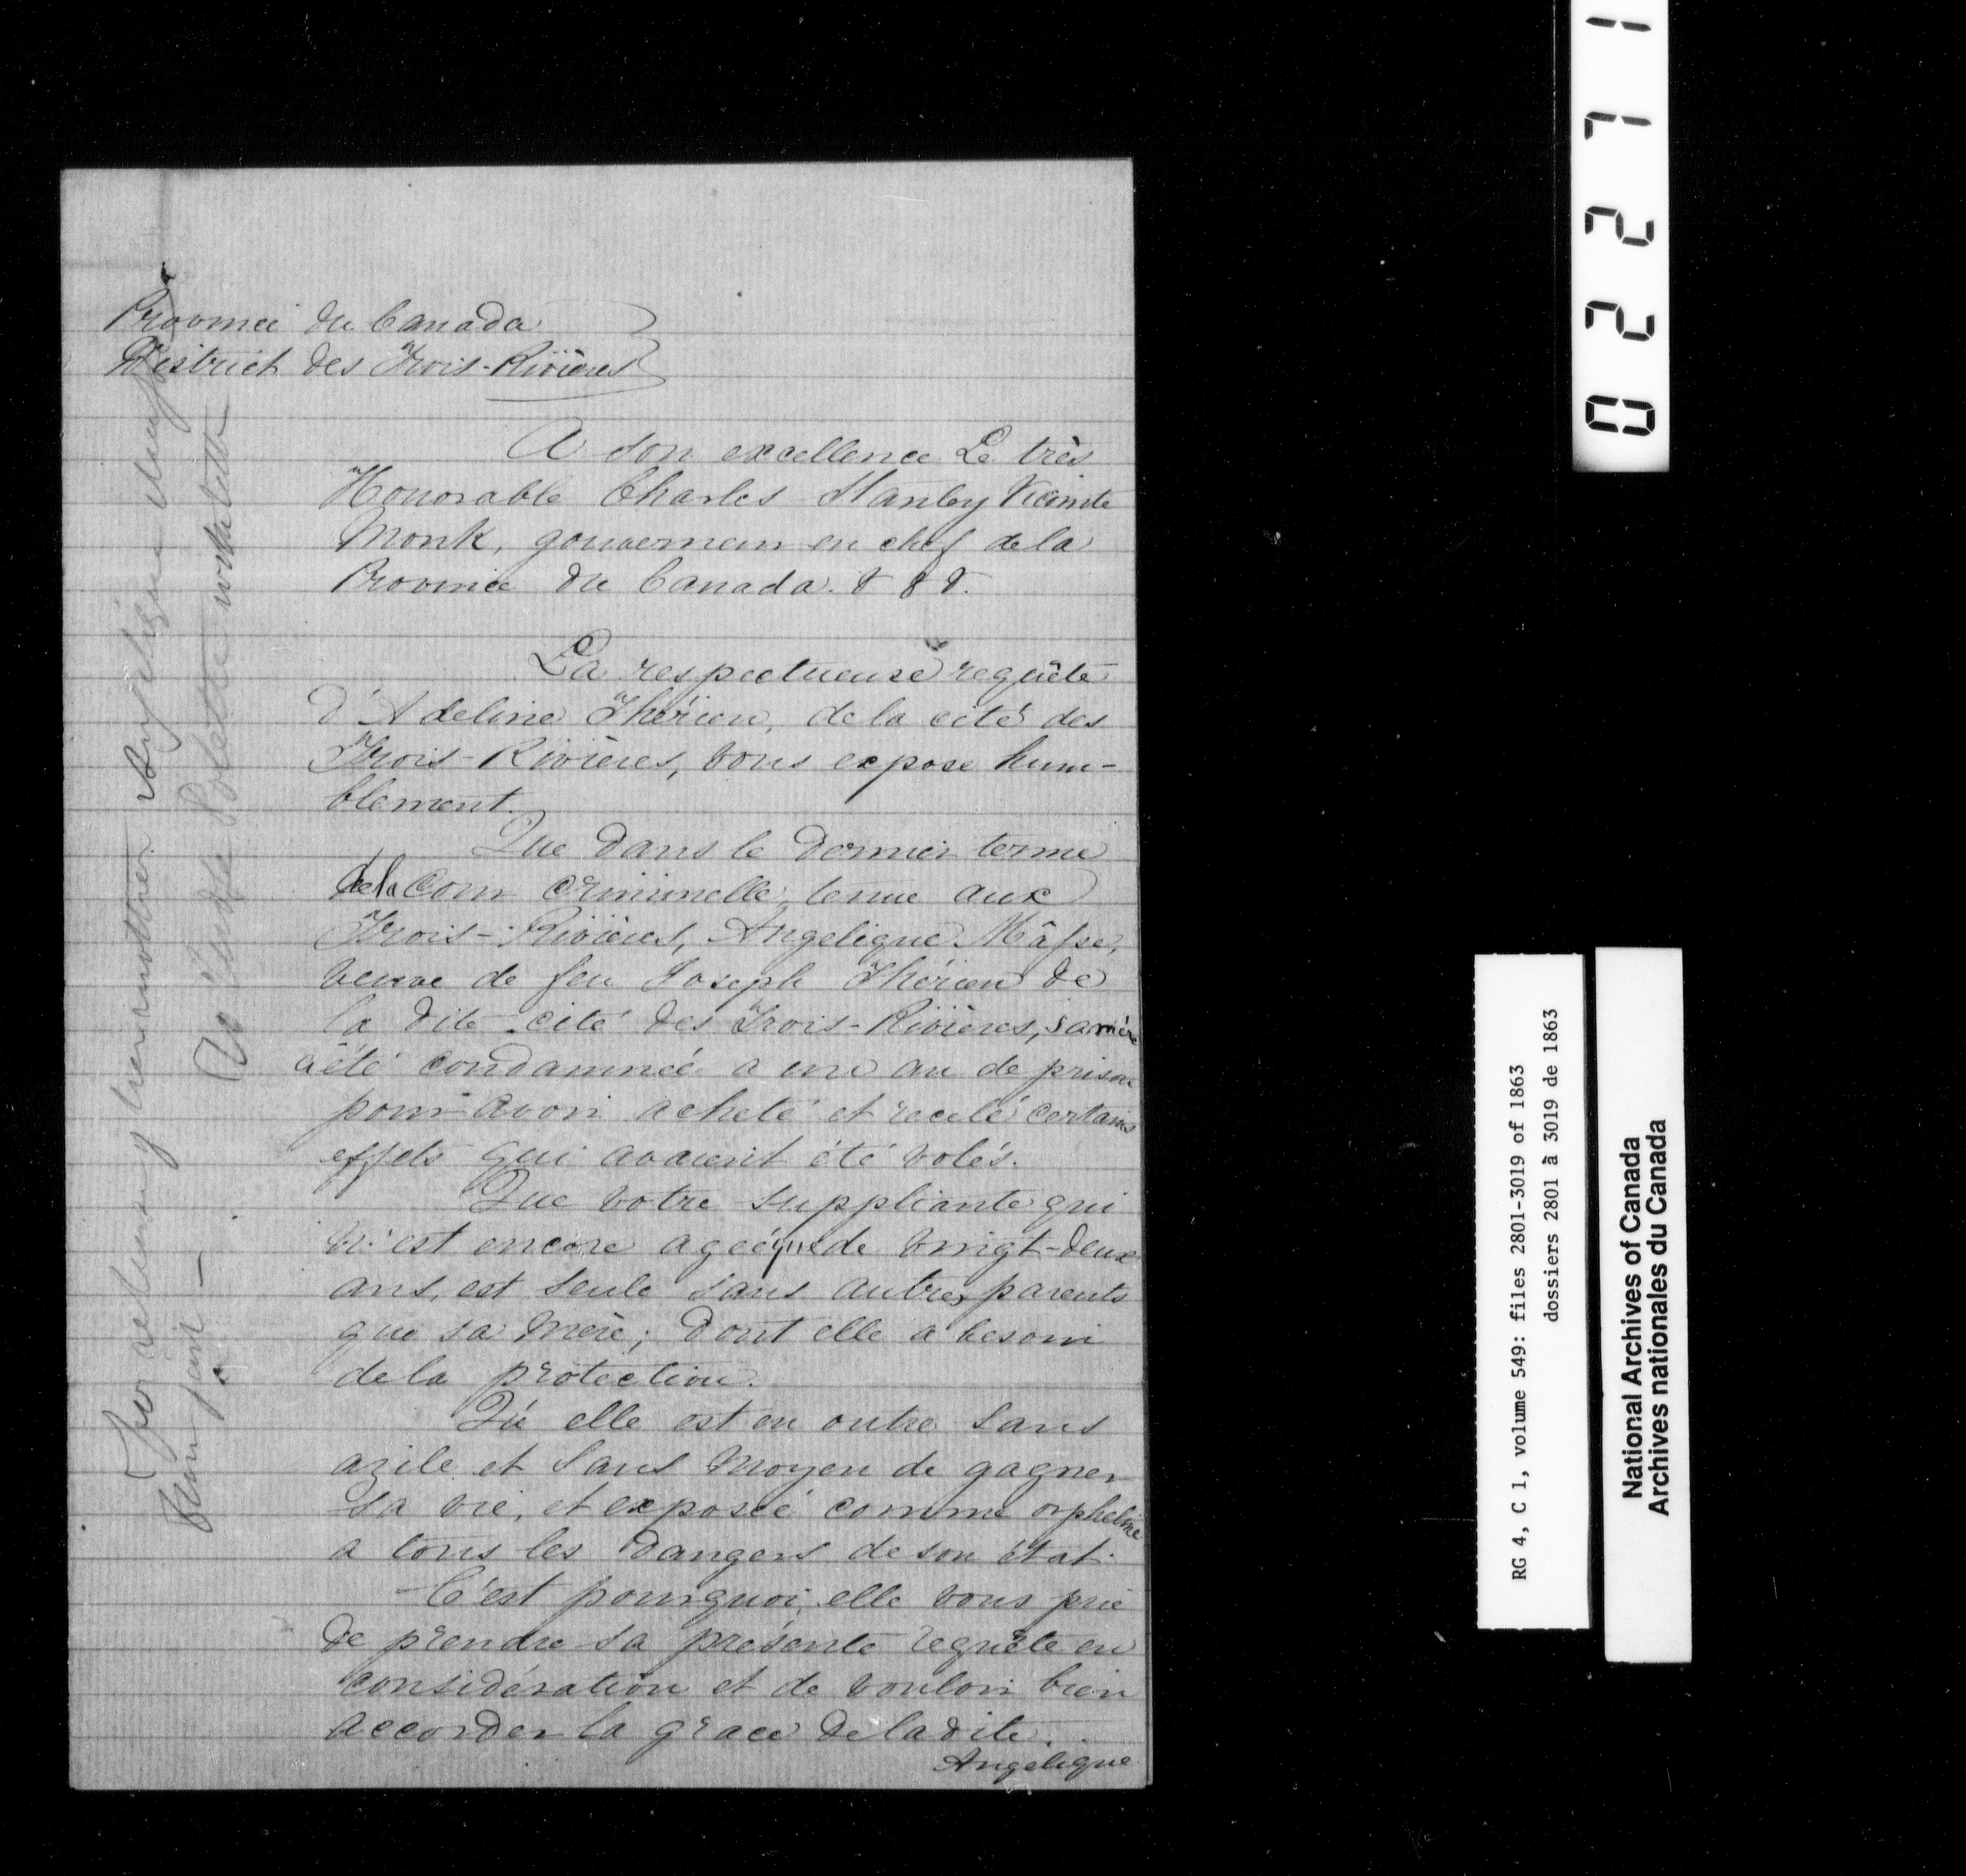 Province du Canada
District des Trois-Rivières
A son excellence Le très
Honorable Charles Stanley Vicomte
Monk, gouverneur en chef de la
Province du Canada. & & &.
La respectueuse requête
d'Adeline Thérien, de la cité des
Trois-Rivières, vous expose hum-
blement.
Que dans le dernier terme
de la Cour Criminelle, tenue aux
Trois-Rivières, Angelique Mâsse,
veuve de feu Joseph Thérien de
la dite cité des Trois-Rivières, sa mère
a été condamnée a un an de prison
pour avoir acheté et recelé certains
effets qui avaient été volés.
Que votre suppliante qui
n'est encore agée que de vingt-deux
ans, est seule sans autres parents
que sa mère; dont elle a besoin
de la protection.
Qu'elle est en outre sans
azile et sans moyen de gagner
sa vie, et exposée comme orpheline
a tous les dangers de son état.
C'est pourquoi, elle vous prie
de prendre sa présente requête en
considération et de vouloir bien
accorder la grace de la dite.
Angelique
for release of her mother Angelique
To Judge Polette
Recr
02271
RG 4, C 1, volume 549: files 2801-3019 of 1863
dossiers 2801 à 3019 de 1863
National Archives of Canada
Archives nationales du Canada